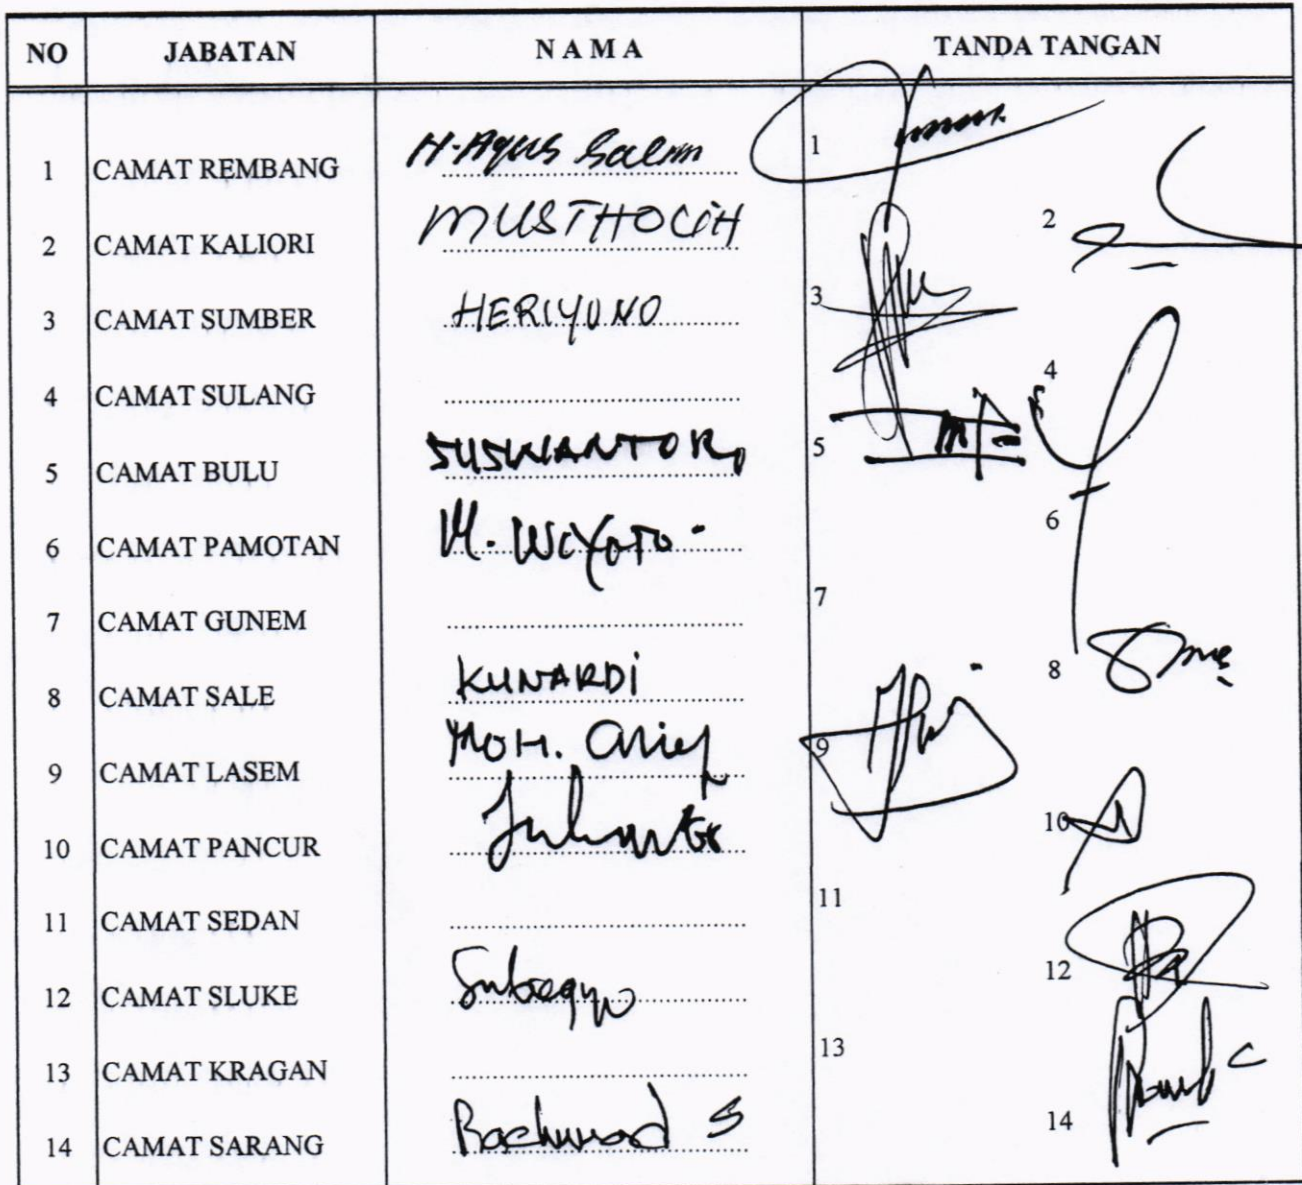 NO JABATAN N A M A TANDA TANGAN
1 CAMAT REMBANG H. Agus Salim 1
2 CAMAT KALIORI MUSTHOLIH 2
3 CAMAT SUMBER HERIYONO 3
4 CAMAT SULANG 4
5 CAMAT BULU SUSWANTORO 5
6 CAMAT PAMOTAN M. WIYOTO 6
7 CAMAT GUNEM 7
8 CAMAT SALE KUNARDI 8
9 CAMAT LASEM MOH. Arief 9
10 CAMAT PANCUR 10
11 CAMAT SEDAN 11
12 CAMAT SLUKE Subagyo 12
13 CAMAT KRAGAN 13
14 CAMAT SARANG S 14